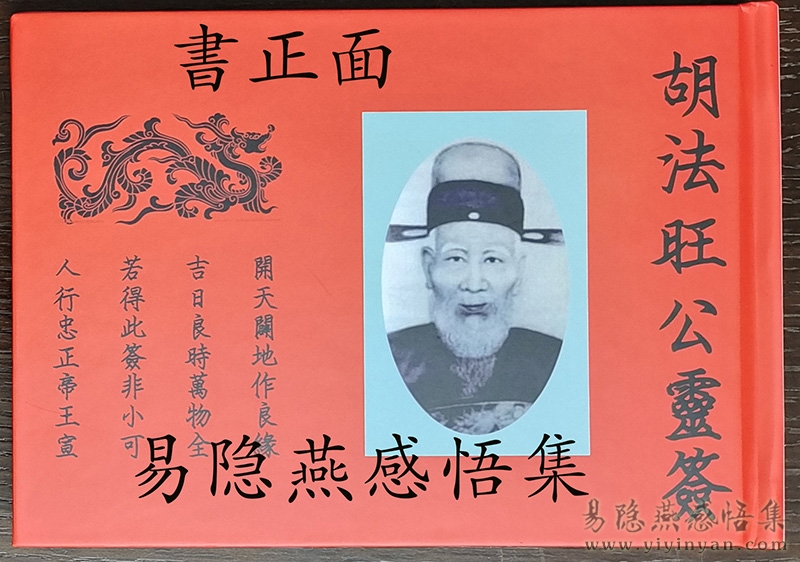 書正面
胡法旺公靈簽
開天闢地作良緣
吉日良時萬物全
若得此簽非小可
人行忠正帝王宣
易隐燕感悟集
易隐燕感悟集
www.yiyinyan.com